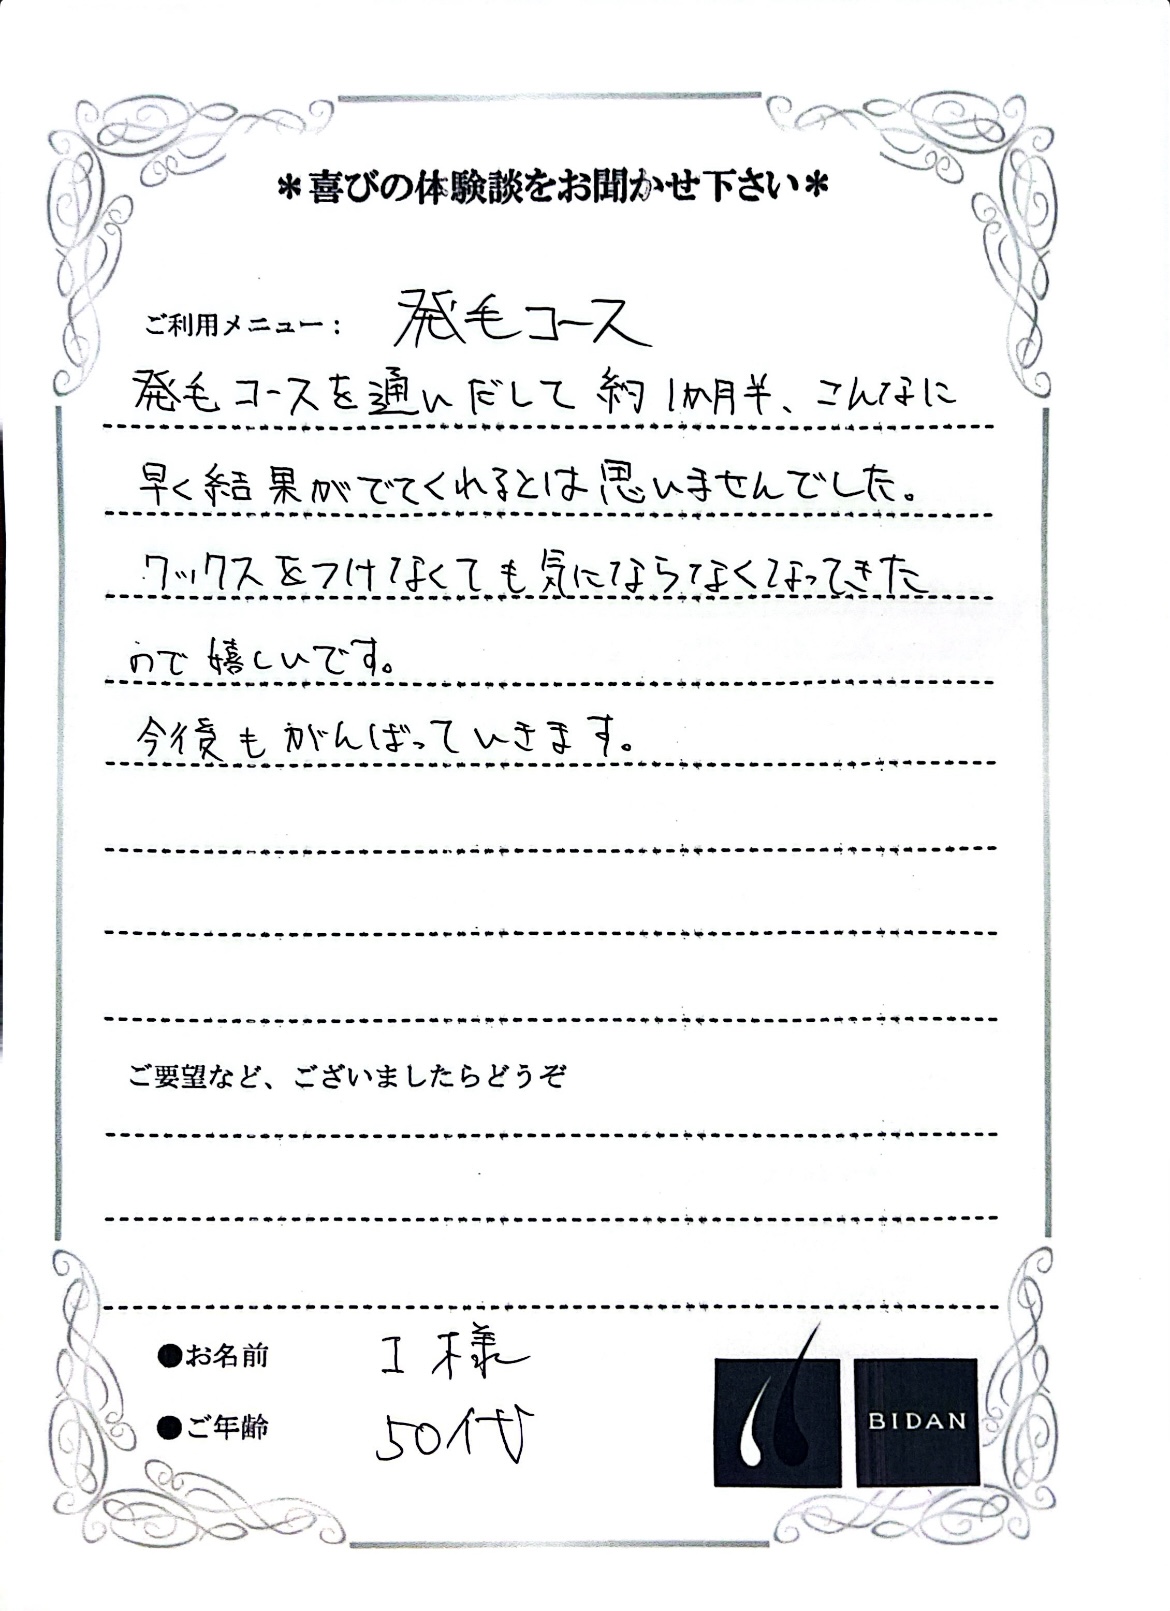 ＊喜びの体験談をお聞かせ下さい＊
ご利用メニュー： 発毛コース
発毛コースを通いだして約1か月半、こんなに
早く結果がでてくれるとは思いませんでした。
ワックスをつけなくても気にならなくなってきた
ので嬉しいです。
今後もがんばっていきます。
ご要望など、ございましたらどうぞ
●お名前 I様
●ご年齢 50代
BIDAN